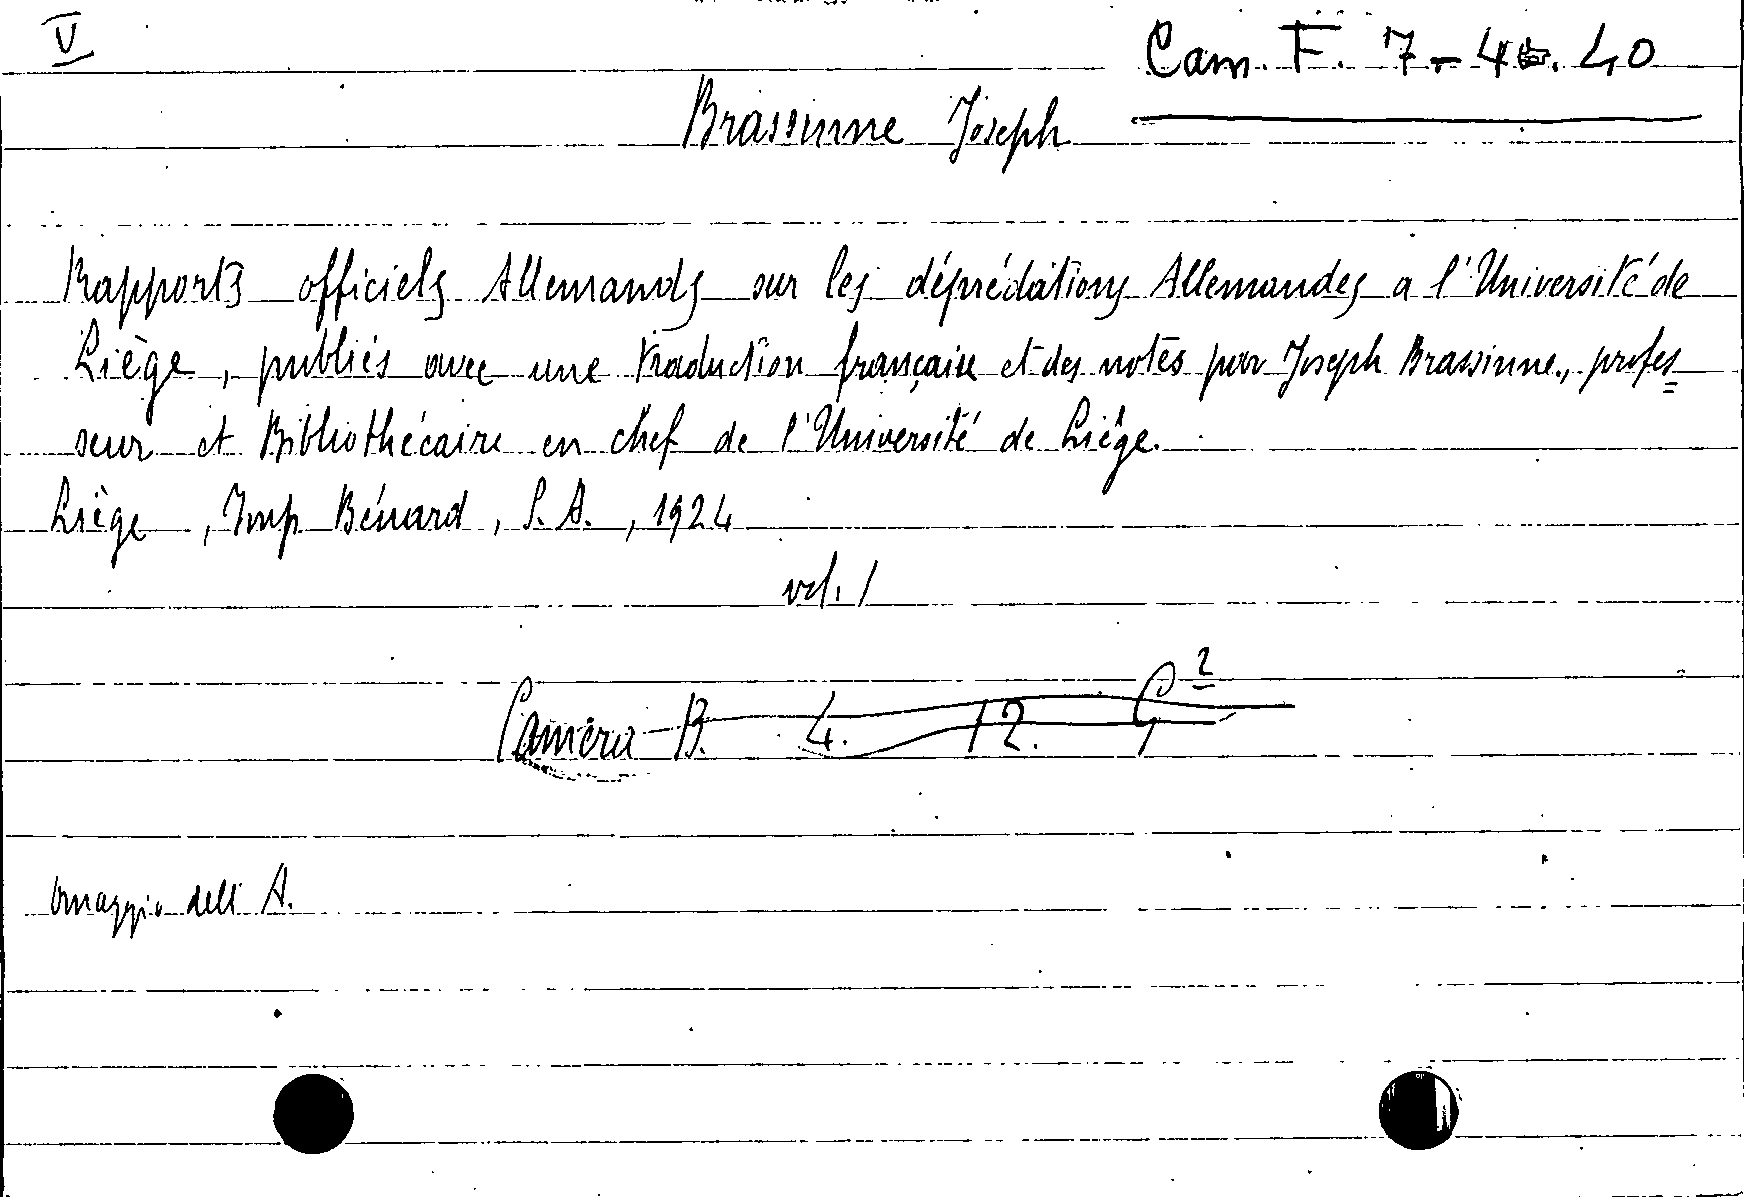 V
Cam. F. 7-4. 40
Brassinne Joseph
Rapports officiels Allemands sur les déprédations Allemandes a l'Université de
Liège, publiés avec une traduction française et des notes par Joseph Brassinne, profes=
seur et Bibliothécaire en chef de l'Université de Liège.
Liège, Imp Bénard, S. A., 1924
vol. 1
Camera B. 4. 12.
omaggio dell A.